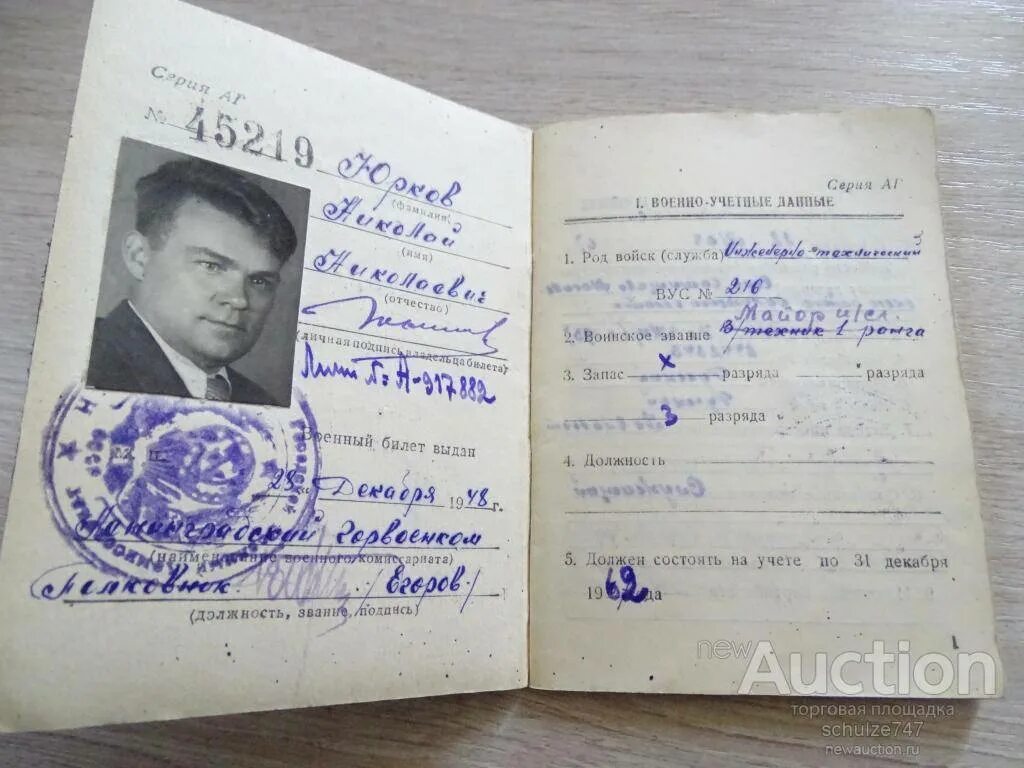 Серия АГ
№ 45219
Юрков
(фамилия)
Николай
(имя)
Николаевич
(отчество)
(личная подпись владельца билета)
Лит № А-917882
Военный билет выдан
28 " Декабря 1948 г.
Ленинградский Горвоенком
(наименование военного комиссариата)
Полковник /Егоров/
(должность, звание, подпись)
Серия АГ
I. ВОЕННО-УЧЕТНЫЕ ДАННЫЕ
1. Род войск (служба) Инженерно-технический
ВУС № 216
Майор
2. Воинское звание техник 1 ранга
3. Запас х разряда разряда
3 разряда
4. Должность
5. Должен состоять на учете по 31 декабря
1962 года
1
newAuction
торговая площадка
schulze747
newauction.ru